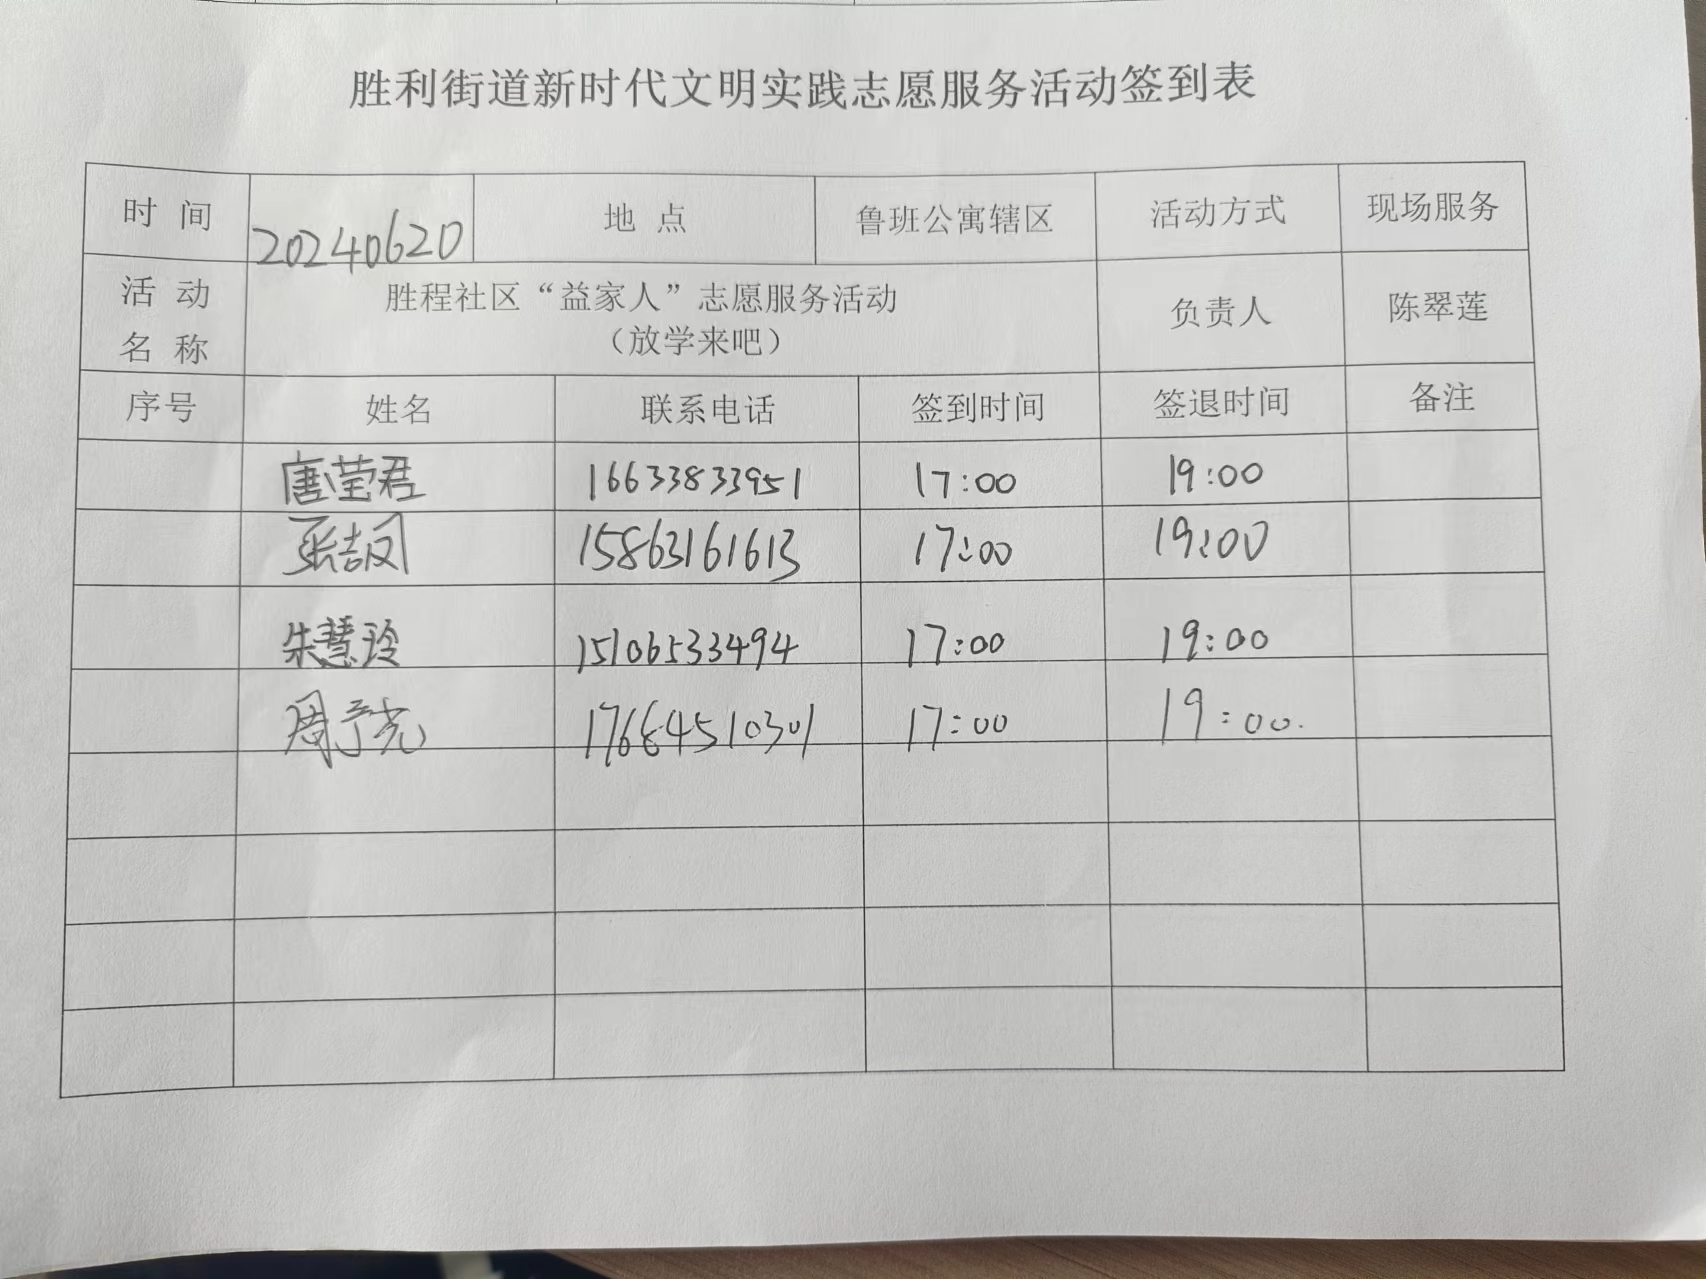 胜利街道新时代文明实践志愿服务活动签到表
时 间 20240620 地 点 鲁班公寓辖区 活动方式 现场服务
活 动
名 称 胜程社区“益家人”志愿服务活动
（放学来吧） 负责人 陈翠莲
序号 姓名 联系电话 签到时间 签退时间 备注
唐莹君 16633833951 17:00 19:00
张吉凤 15863161613 17:00 19:00
朱慧玲 15106533494 17:00 19:00
周予尧 17664510301 17:00 19:00.